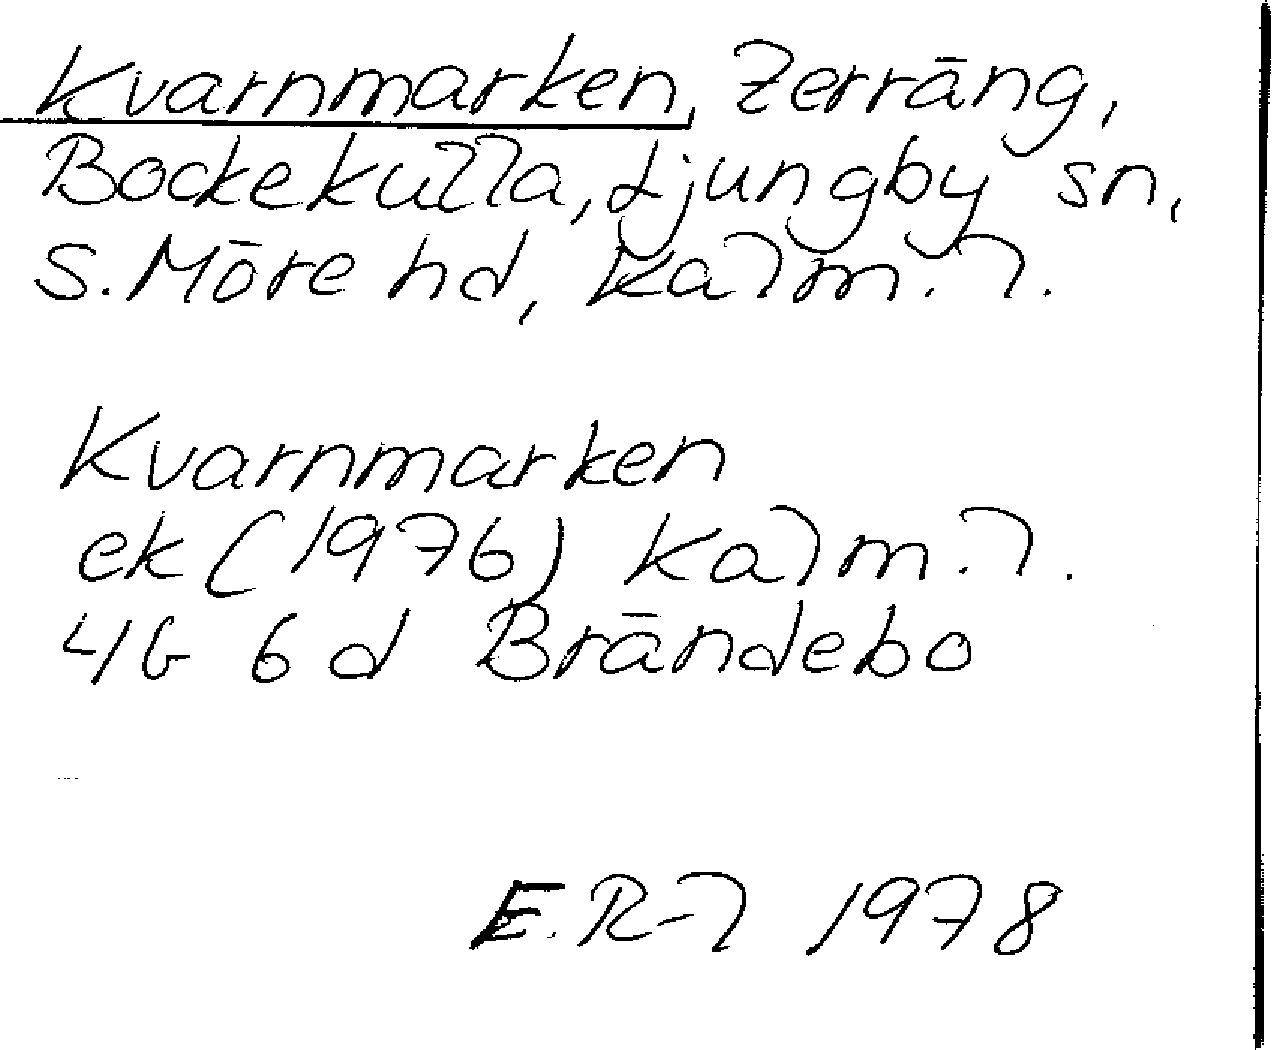 Kvarnmarken, Terräng,
Bockekulla, Ljungby sn,
S. Möre hd, Kalm. l.
Kvarnmarken
ek (1976) Kalm. l.
4G 6d Brändebo
E. R-l 1978